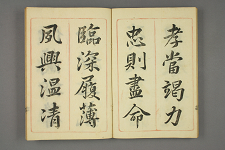 孝當竭力
忠則盡命
臨深履薄
夙興温凊